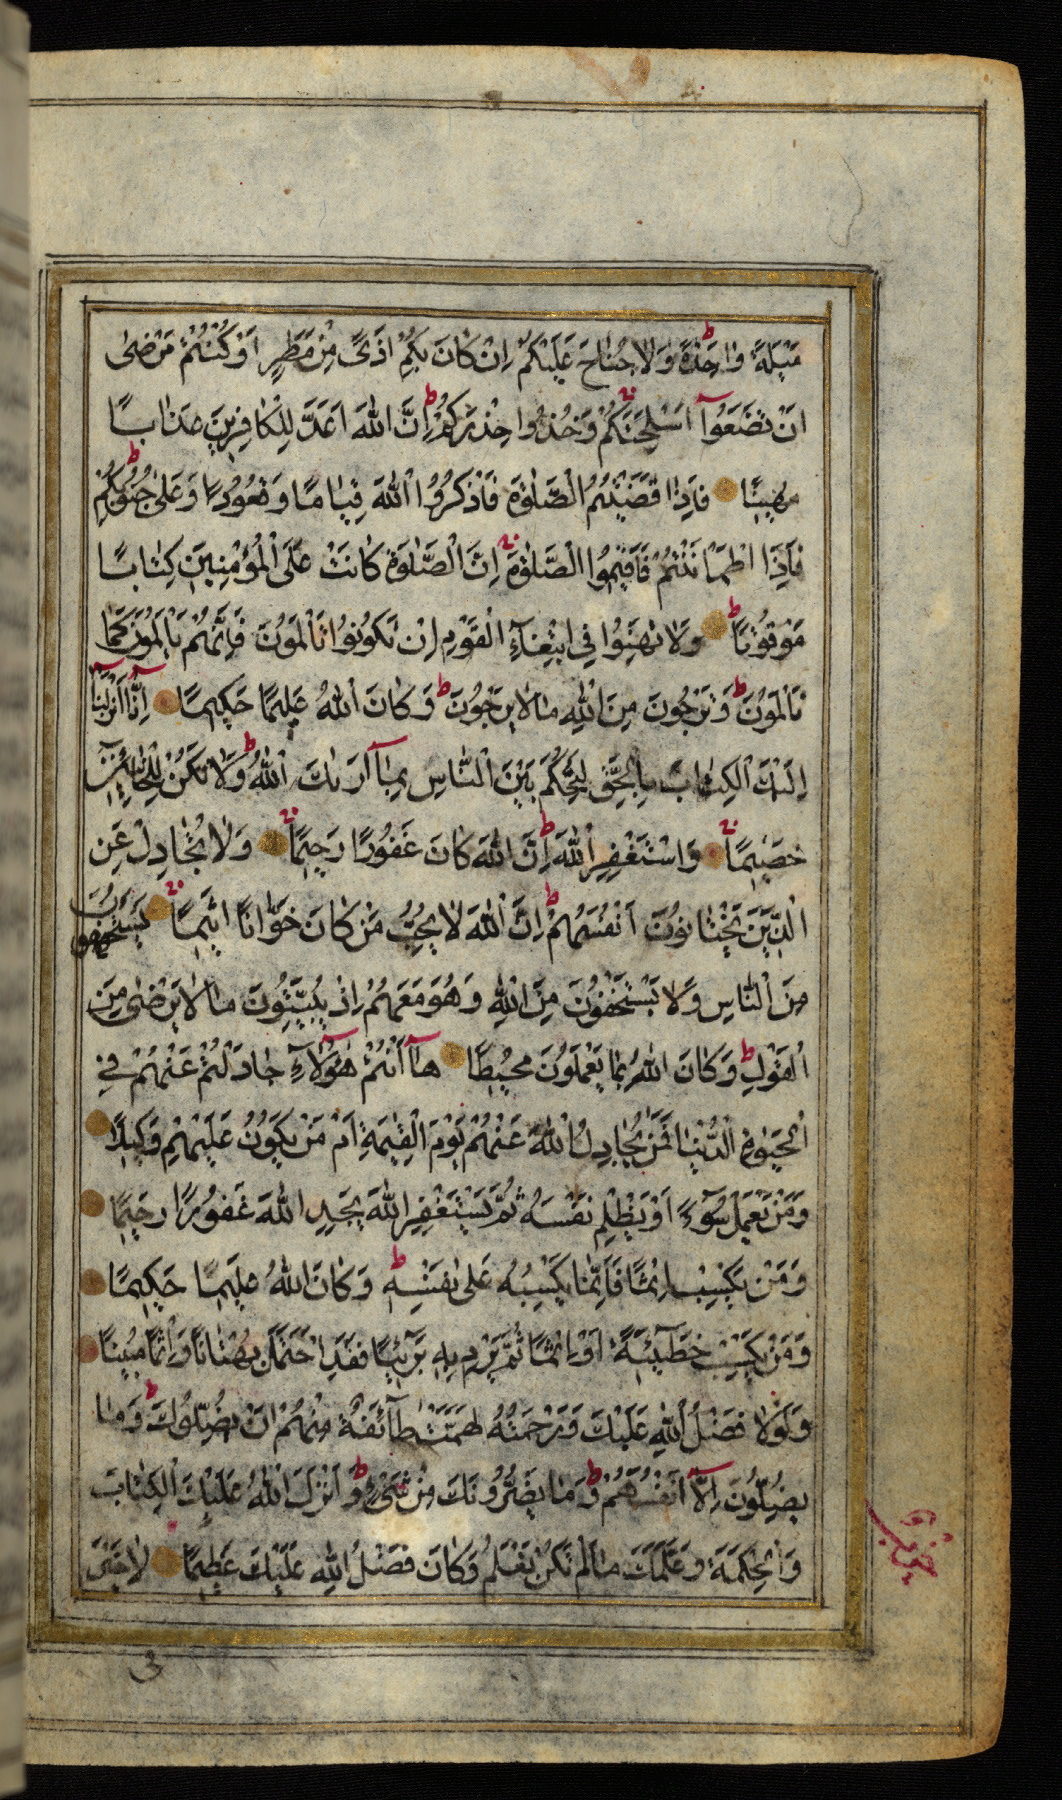 مَيْلَةً وَاحِدَةً وَلَا جُنَاحَ عَلَيْكُمْ اِنْ كَانَ بِكُمْ اَذًى مِنْ مَطَرٍ اَوْ كُنْتُمْ مَرْضٰى
اَنْ تَضَعُوٓا اَسْلِحَتَكُمْ وَخُذُوا حِذْرَكُمْ ط اِنَّ اللّٰهَ اَعَدَّ لِلْكَافِرِينَ عَذَابًا
مُهِينًا فَاِذَا قَضَيْتُمُ الصَّلٰوةَ فَاذْكُرُوا اللّٰهَ قِيَامًا وَقُعُودًا وَعَلٰى جُنُوبِكُمْ ط
فَاِذَا اطْمَاْنَنْتُمْ فَاَقِيمُوا الصَّلٰوةَ اِنَّ الصَّلٰوةَ كَانَتْ عَلَى الْمُؤْمِنِينَ كِتَابًا
مَوْقُوتًا ط وَلَا تَهِنُوا فِي ابْتِغَآءِ الْقَوْمِ اِنْ تَكُونُوا تَاْلَمُونَ فَاِنَّهُمْ يَاْلَمُونَ كَمَا
تَاْلَمُونَ ط وَتَرْجُونَ مِنَ اللّٰهِ مَا لَا يَرْجُونَ ط وَكَانَ اللّٰهُ عَلِيمًا حَكِيمًا اِنَّآ اَنْزَلْنَآ
اِلَيْكَ الْكِتَابَ بِالْحَقِّ لِتَحْكُمَ بَيْنَ النَّاسِ بِمَآ اَرٰىكَ اللّٰهُ ط وَلَا تَكُنْ لِلْخَآئِنِينَ
خَصِيمًا وَاسْتَغْفِرِ اللّٰهَ ط اِنَّ اللّٰهَ كَانَ غَفُورًا رَحِيمًا وَلَا تُجَادِلْ عَنِ
الَّذِينَ يَخْتَانُونَ اَنْفُسَهُمْ ط اِنَّ اللّٰهَ لَا يُحِبُّ مَنْ كَانَ خَوَّانًا اَثِيمًا يَسْتَخْفُونَ
مِنَ النَّاسِ وَلَا يَسْتَخْفُونَ مِنَ اللّٰهِ وَهُوَ مَعَهُمْ اِذْ يُبَيِّتُونَ مَا لَا يَرْضٰى مِنَ
الْقَوْلِ ط وَكَانَ اللّٰهُ بِمَا يَعْمَلُونَ مُحِيطًا هَآ اَنْتُمْ هٰٓؤُلَآءِ جَادَلْتُمْ عَنْهُمْ فِي
الْحَيٰوةِ الدُّنْيَا فَمَنْ يُجَادِلُ اللّٰهَ عَنْهُمْ يَوْمَ الْقِيٰمَةِ اَمْ مَنْ يَكُونُ عَلَيْهِمْ وَكِيلًا
وَمَنْ يَعْمَلْ سُوٓءًا اَوْ يَظْلِمْ نَفْسَهُ ثُمَّ يَسْتَغْفِرِ اللّٰهَ يَجِدِ اللّٰهَ غَفُورًا رَحِيمًا
وَمَنْ يَكْسِبْ اِثْمًا فَاِنَّمَا يَكْسِبُهُ عَلٰى نَفْسِهِ ط وَكَانَ اللّٰهُ عَلِيمًا حَكِيمًا
وَمَنْ يَكْسِبْ خَطِٓيئَةً اَوْ اِثْمًا ثُمَّ يَرْمِ بِهِ بَرِٓيئًا فَقَدِ احْتَمَلَ بُهْتَانًا وَاِثْمًا مُبِينًا
وَلَوْلَا فَضْلُ اللّٰهِ عَلَيْكَ وَرَحْمَتُهُ لَهَمَّتْ طَآئِفَةٌ مِنْهُمْ اَنْ يُضِلُّوكَ ط وَمَا
يُضِلُّونَ اِلَّآ اَنْفُسَهُمْ ط وَمَا يَضُرُّونَكَ مِنْ شَيْءٍ ط وَاَنْزَلَ اللّٰهُ عَلَيْكَ الْكِتَابَ
وَالْحِكْمَةَ وَعَلَّمَكَ مَا لَمْ تَكُنْ تَعْلَمُ وَكَانَ فَضْلُ اللّٰهِ عَلَيْكَ عَظِيمًا لَا خَيْرَ
فى